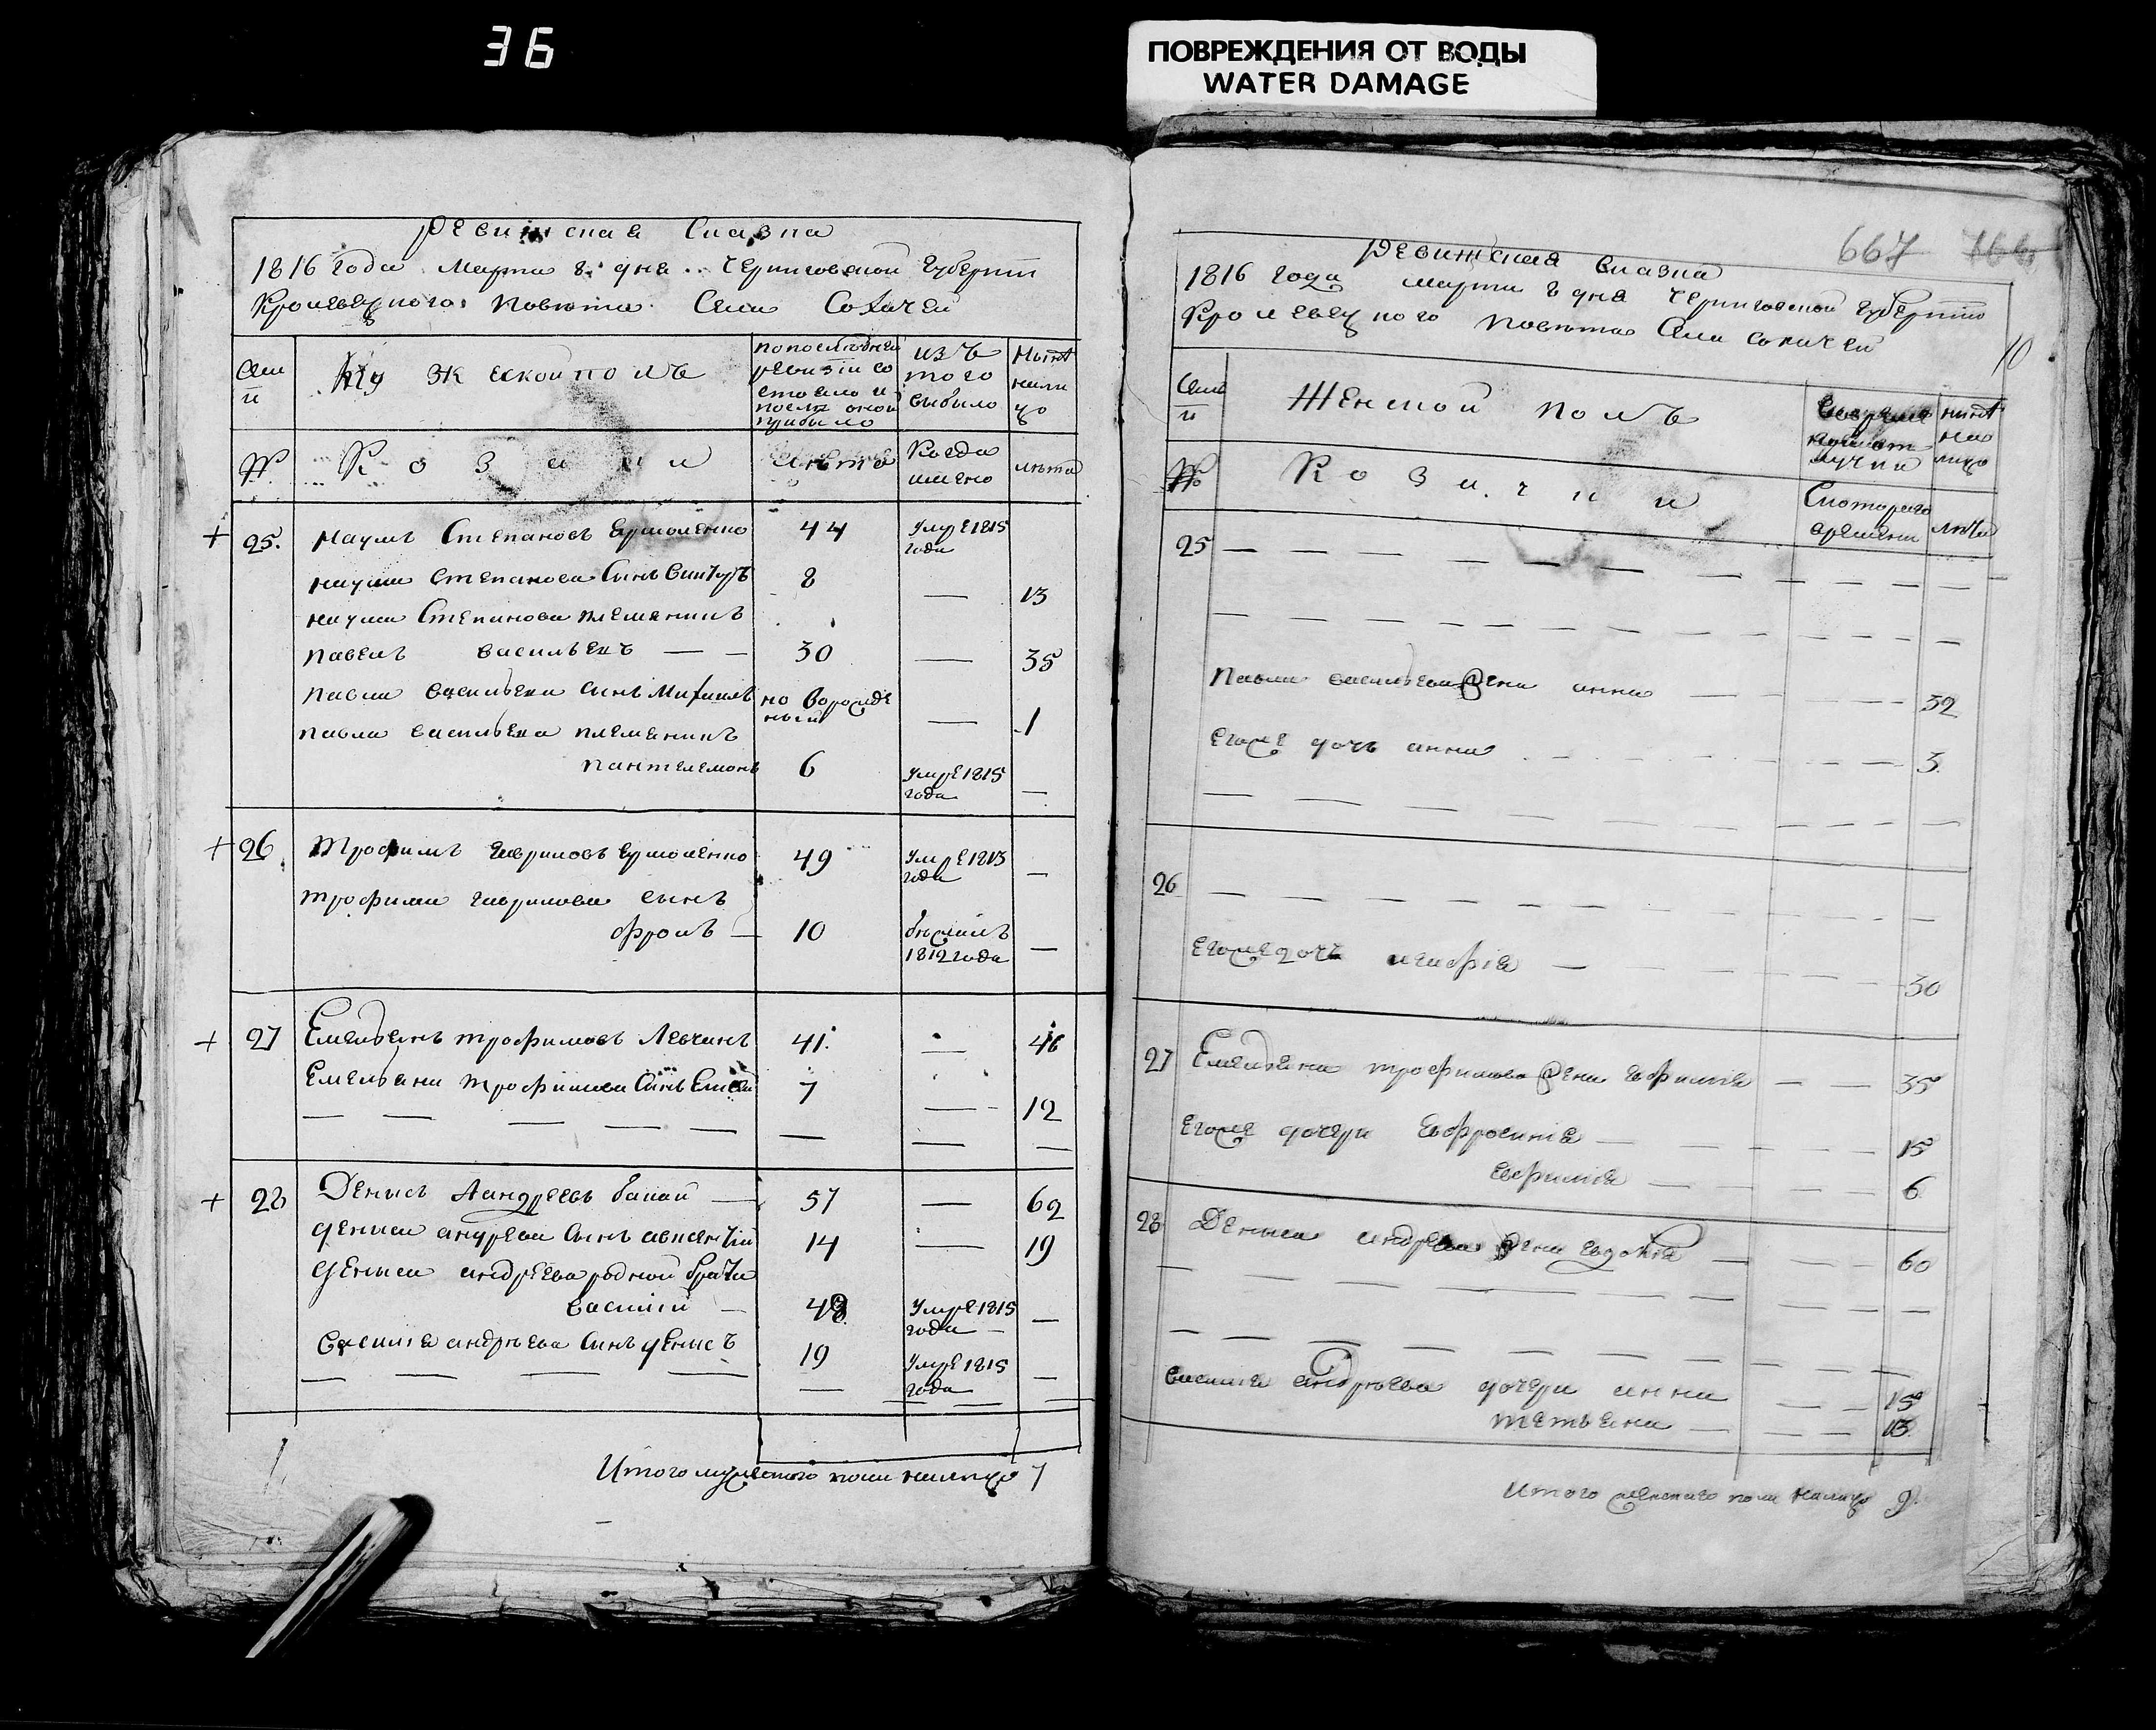 36
ПОВРЕЖДЕНИЯ ОТ ВОДЫ
WATER DAMAGE
Ревижская Сказка
1816 года Марта 8 дня Черниговской Губернии
Кролевецкого Повѣта Села Сохачей
Семи
и
Мужеской полъ
По последней
ревизіи со
стояло и
после оной
прибыло
изъ
того
выбыло
Нынѣ
нали
цо
№
Козаки
лѣта
Когда
имено
лѣта
25. Наумъ Степановъ Ермоленко 44 Умре 1815
года
Наума Степанова Сынъ 8 — 13
Наума Степанова племяникъ
Павелъ Васильевъ — — 30 — 35
Павла Васильева сынъ Михаилъ но ворожде
ный — 1
Павла Васильева племяникъ
Пантелемонъ 6 Умре 1815
года —
26 Трофимъ Гавриловъ Ермоленко 49 Умре 1813
года —
Трофима Гаврилова сынъ
Фролъ — 10 бежалъ
1812 года —
27 Емельянъ Трофимовъ Левчинъ 41 — 46
Емельяна Трофимова Сынъ Елисей 7 — 12
28 Денисъ Андреевъ бакай — 57 — 62
Дениса андреева Сынъ авксентій 14 — 19
Дениса андреева родной братъ
Василій — 48 Умре 1815
года —
Василия андрѣева Сынъ денисъ 19 Умре 1815
года —
Итого мужеского пола налицо 7
667
10
Ревижская Сказка
1816 года Марта 8 дня Черниговской Губерніи
Кролевецкого Повѣта Села Сохачей
Семи
и
Женской полъ
отлучки
нынѣ
на
лицо
№
Козачки
Скоторого
времени
лѣта
25
Павла Васильева жена анна — 32
Егоже дочь анна 3
26
Егоже дочь — 30
27 Емельяна Трофимова жена Евфимия — — 35
Егоже дочери Евфросиния — 15
Евфимия — 6
28 Дениса андреева жена Евдокия — 60
Василия андрѣева дочери анна 15
Татьяна — 13
Итого женского пола налицо 9